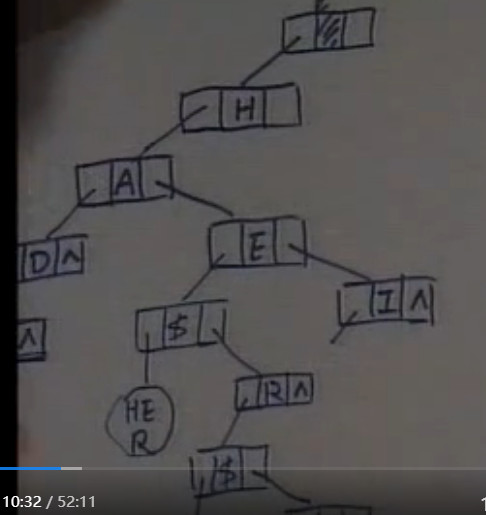 H
A
D ∧
E
I ∧
∧
$
R ∧
HE
R
$
10:32 / 52:11